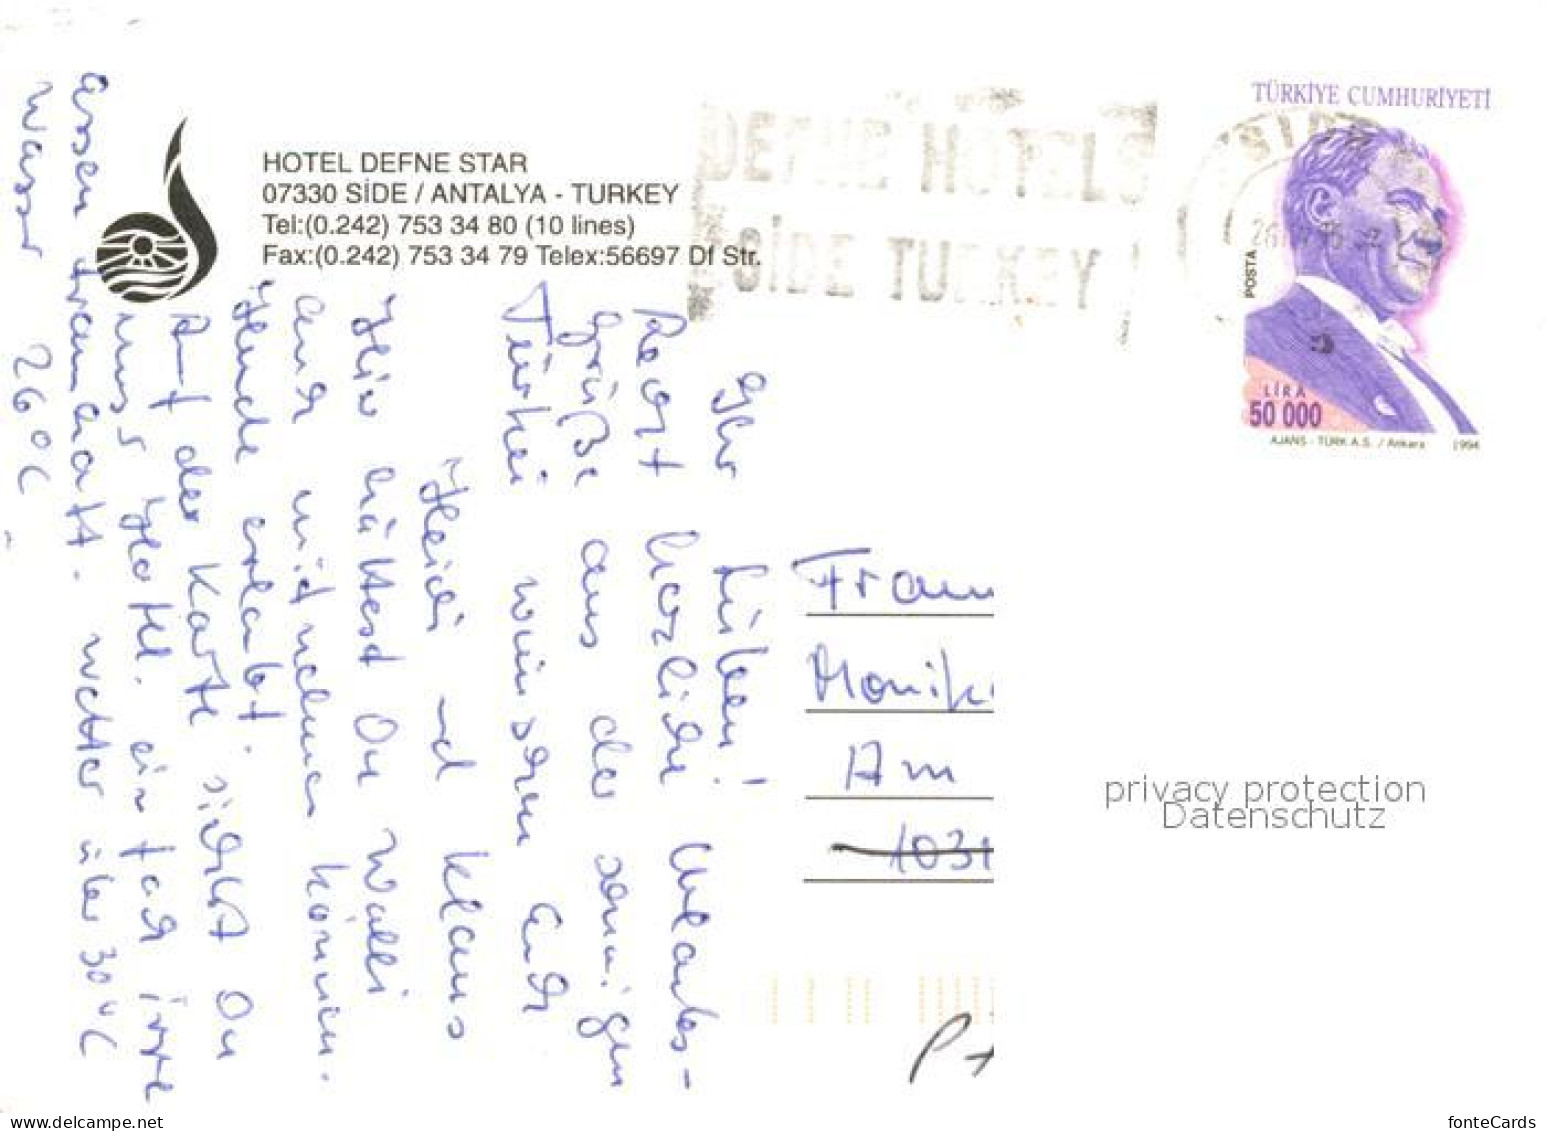 HOTEL DEFNE STAR
07330 SİDE / ANTALYA - TURKEY
Tel:(0.242) 753 34 80 (10 lines)
Fax:(0.242) 753 34 79 Telex:56697 Df Str.
DEFNE HOTEL
SİDE TURKEY
SIDE
TÜRKİYE CUMHURİYETİ
POSTA
LİRA
50 000
AJANS - TÜRK A.S. / Ankara 1994
Ihr Lieben!
Recht herzliche Urlaubs-
grüße aus der sonnigen
Türkei wünschen Euch
Heidi und Klaus
Hier hättest Du Walli
auch mitnehmen können.
Hunde erlaubt.
Auf der Karte siehst Du
unser Hotel. Einfach irre
Essen traumhaft. Wetter über 30°C
Wasser 26°C
Frau
Monik
Am
1031
privacy protection
Datenschutz
www.delcampe.net
fonteCards